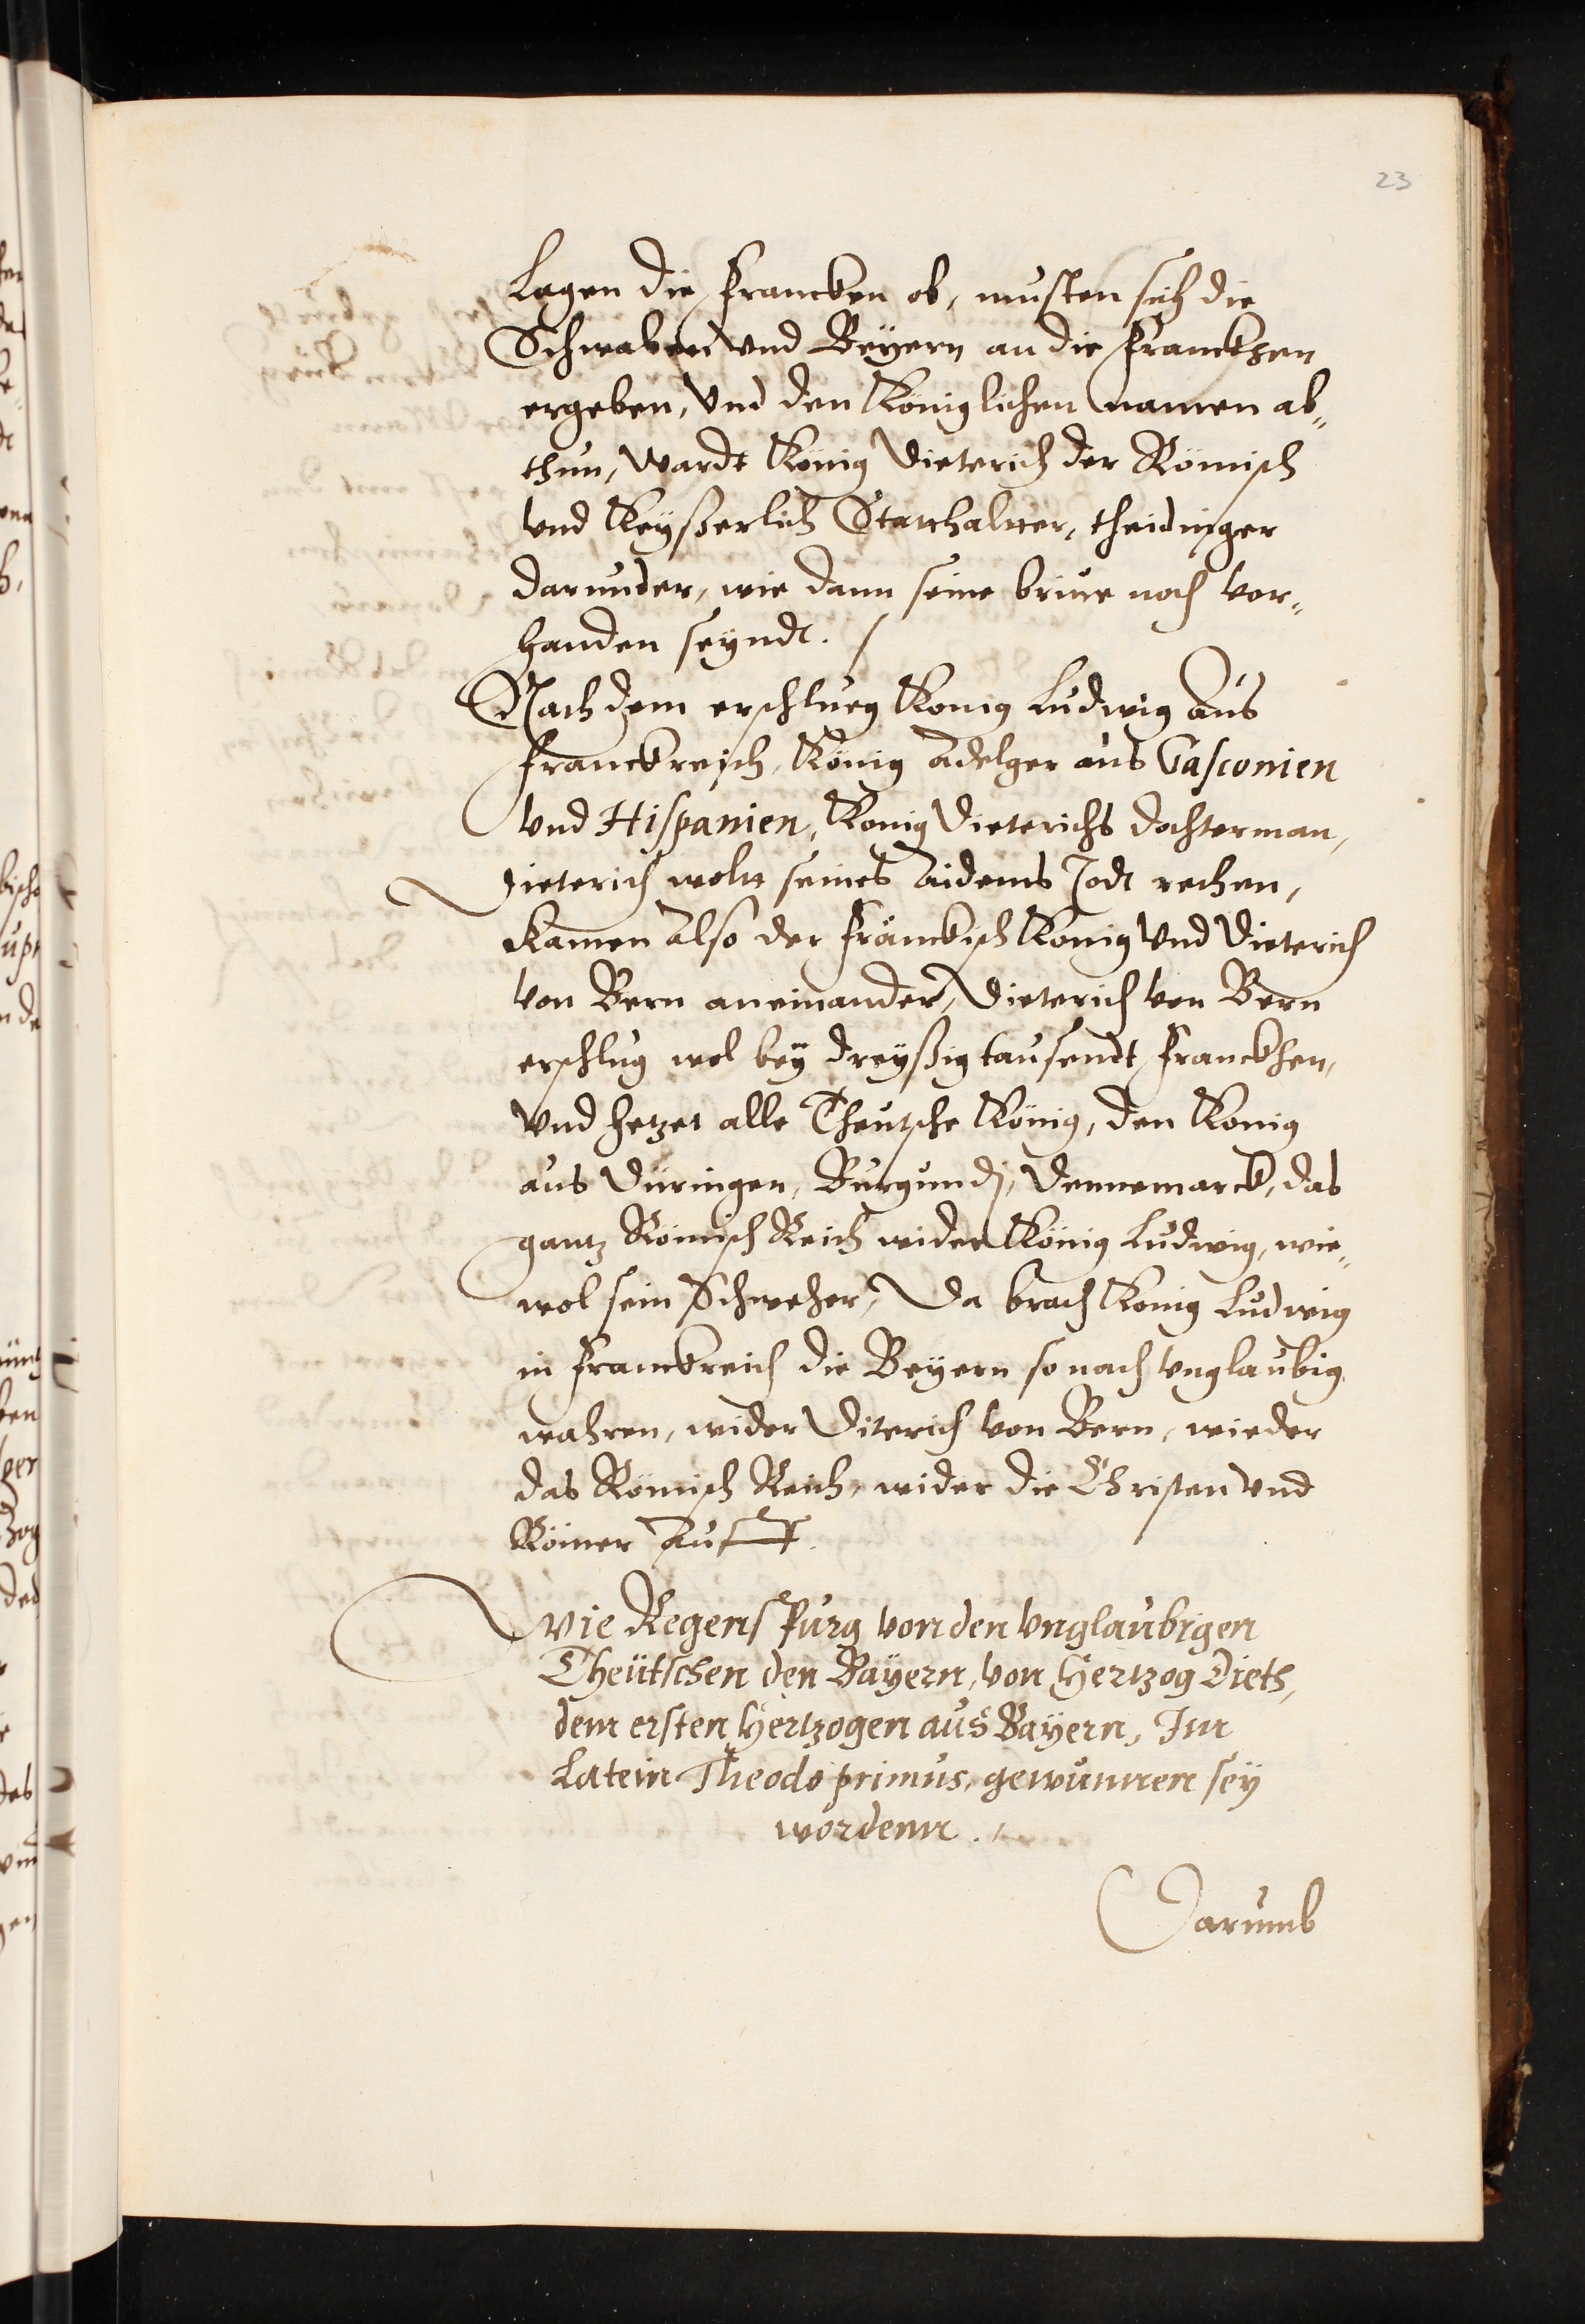 23
Lagen die Francken ob, musten sich die
Schwaben vnd Beÿern an die Franckhen
ergeben, Vnd den Königlichen namen ab„
thun, Wardt König Dieterich der Römisch
vnd Keÿßerlich Statthaltter, theidinger
darunder, wie dann seine brieue noch vor„
handen seÿndt. /
Nach dem erschlueg König Ludwig Aus
Franckreich, König Adelger aus Gasconien
vnd Hispanien, König Dieterichs dochterman,
Dieterich wolt seines Aidems Todt rechen,
Kamen Also der Fränckisch König Vnd Dieterich
von Bern aneinander, Dieterich von Bern
erschlug wol beÿ dreÿßig tausendt Franckhen,
Vnd hetzet alle Theutsche König, den König
aus Düringen, Burgundj, Dennemarck, das
gantz Römisch Reich wider König Ludwig, wie„
wol sein Schweher, Da brach König Ludwig
in Franckreich die Beÿern so noch vnglaubig
wahren, wider Diterich von Bern, wieder
das Römisch Reich, wider die Christen vnd
Römer Auff.
Wie Regenspurg von den vnglaubigen
Theütschen den Bayern, von Hertzog Dieth,
dem ersten Hertzogen aus Bayern, Im
Latein Theodo primus, gewunnen seÿ
wordenn. /
Darumb